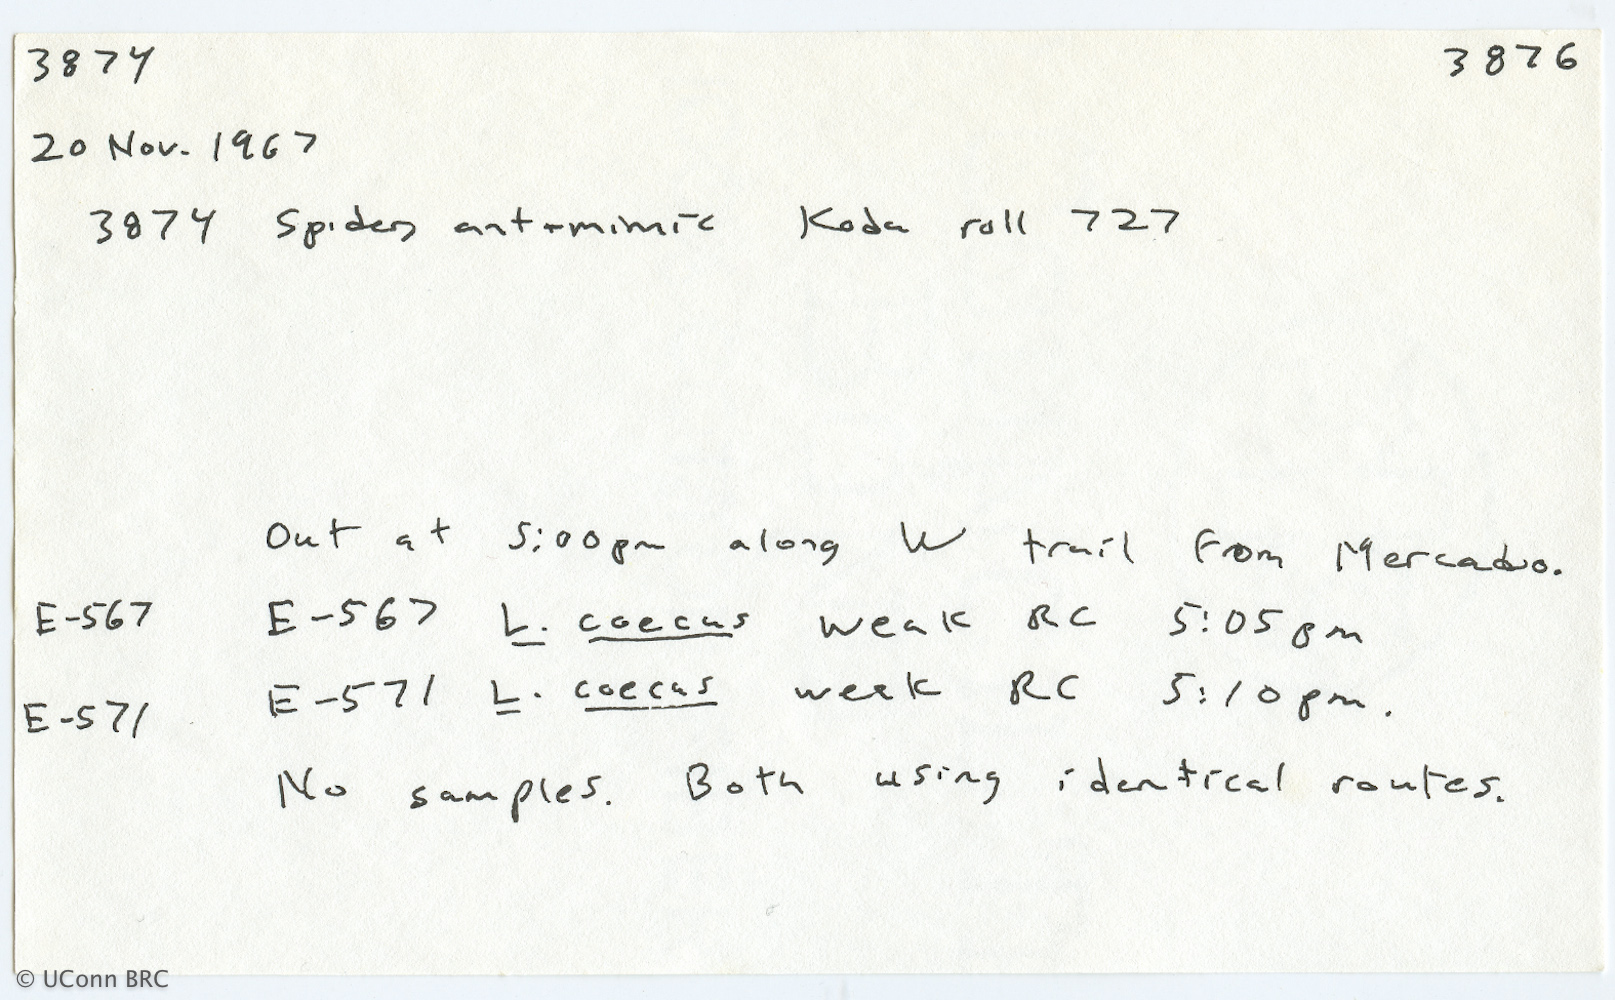 3874 3876
20 Nov. 1967
3874 Spider ant-mimic Koda roll 727
Out at 5:00pm along W trail from Mercadvo.
E-567 E-567 L. coecus weak RC 5:05pm
E-571 E-571 L. coecus weak RC 5:10pm.
No samples. Both using identical routes.
© UConn BRC